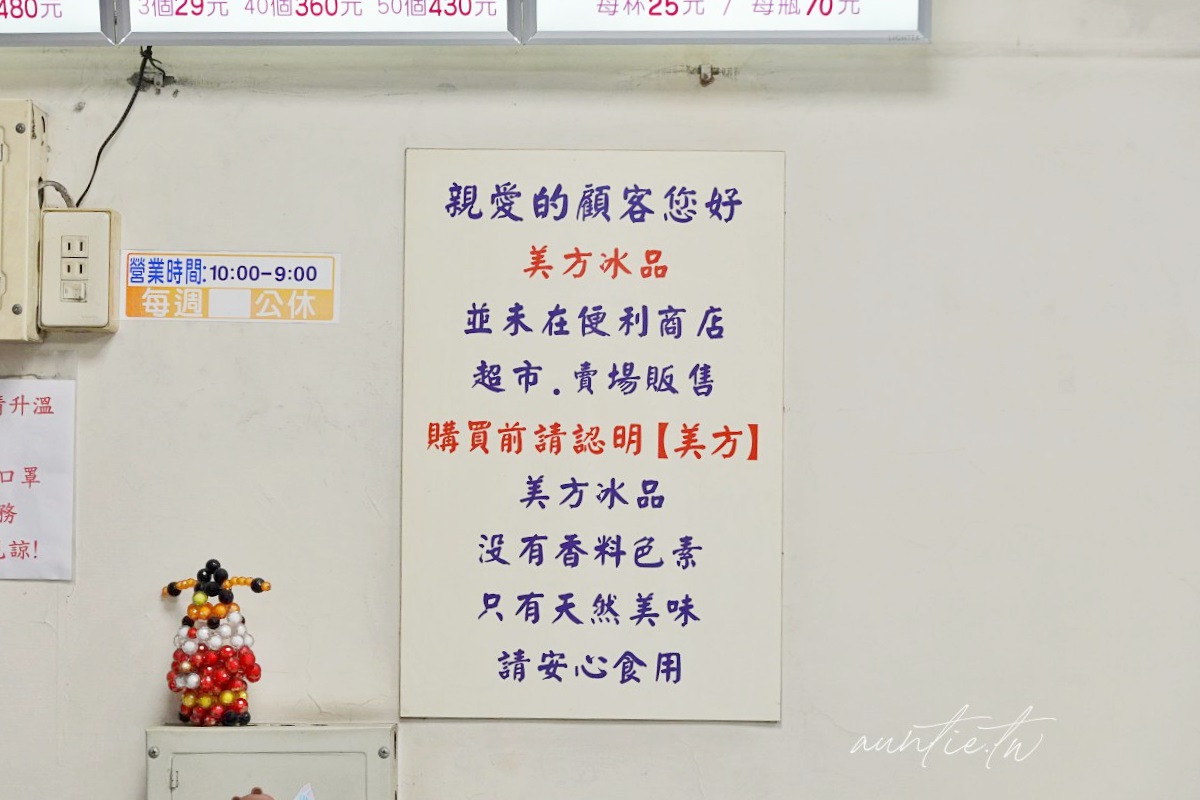 480元
3個29元 40個360元 50個430元
每杯25元 / 每瓶70元
親愛的顧客您好
美方冰品
並未在便利商店
超市.賣場販售
購買前請認明【美方】
美方冰品
没有香料色素
只有天然美味
請安心食用
營業時間:10:00-9:00
每週 公休
升溫
口罩
務
諒!
auntie.tw